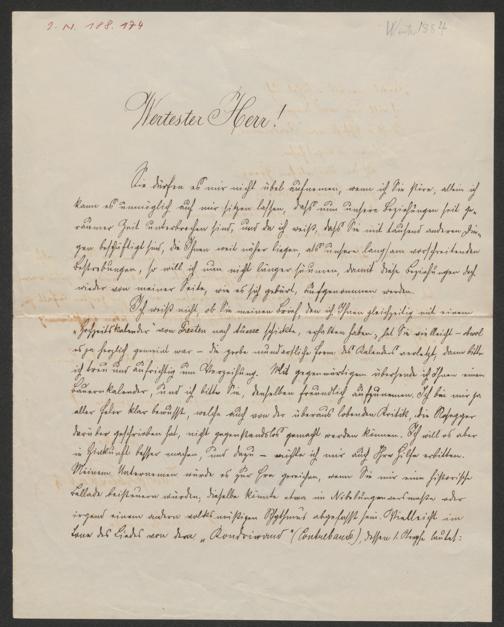 J. N. 188.174
Winter 1884
Wertester Herr!
Sie dürfen es mir nicht übel aufnemen, wenn ich Sie störe, allein ich
kann es unmöglich auf mir sitzen lassen, daß nun unsere Beziehungen seit ge-
raumer Zeit unterbrochen sind, und da ich weiß, daß Sie mit tausend anderen Din-
gen beschäftigt sind, die Ihnen weit näher liegen als unsere langsam vorschreitenden
Bestrebungen, so will ich nun nicht länger säumen, damit diese Beziehungen doch
wieder von meiner Seite, wie es sich gebürt, aufgenommen werden.
Ich weiß nicht, ob Sie meinen Brief, den ich Ihnen gleichzeitig mit einem
Hochzeitskalender von schickte, erhalten haben, hat Sie vielleicht – obwol
es ja herzlich gemeint war – die grobe Form des Kalenders verletzt, dann bitte
ich treu und aufrichtig um Verzeihung. Mit gegenwärtigem übersende ich Ihnen einen
Bauernkalender, und ich bitte Sie, denselben freundlich aufzunemen. Ich bin mir ja
aller Feler klar bewusst, welche auch von der überaus lobenden Kritik, die Rosegger
darüber geschrieben hat, nicht gegenstandslos gemacht werden können. Ich will es aber
in Hinkunft besser machen, und dazu – möchte ich mir auch Ihre Hilfe erbitten.
Meinem Unternemen würde es zur Ehre gereichen, wenn Sie mir eine historische
Ballade beisteuern würden, dieselbe könnte etwa im Nibelungenversmaße oder
irgend einem andern volksmäßigen Rhythmus abgefasst sein. Vielleicht im
Tone des Liedes von dem „Kondriwand" (Contrebande), dessen 1. Strophe lautet: